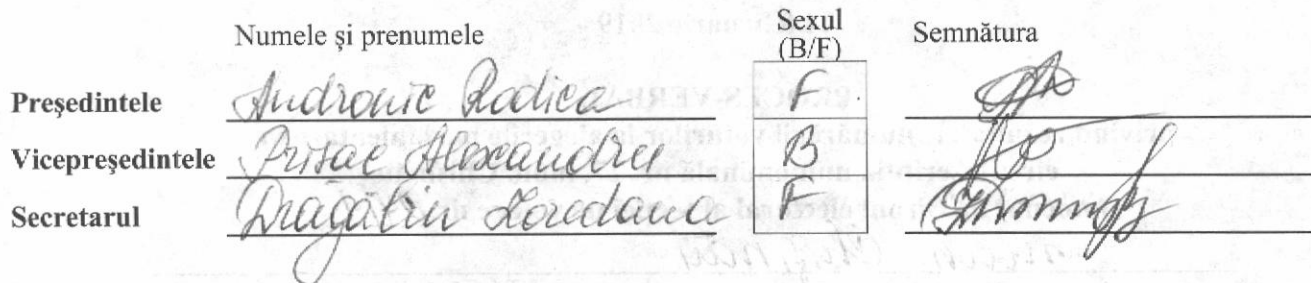 Numele și prenumele Sexul (B/F) Semnătura
Președintele Andronic Rodica F
Vicepreședintele Prisac Alexandru B
Secretarul Dragălin Loredana F